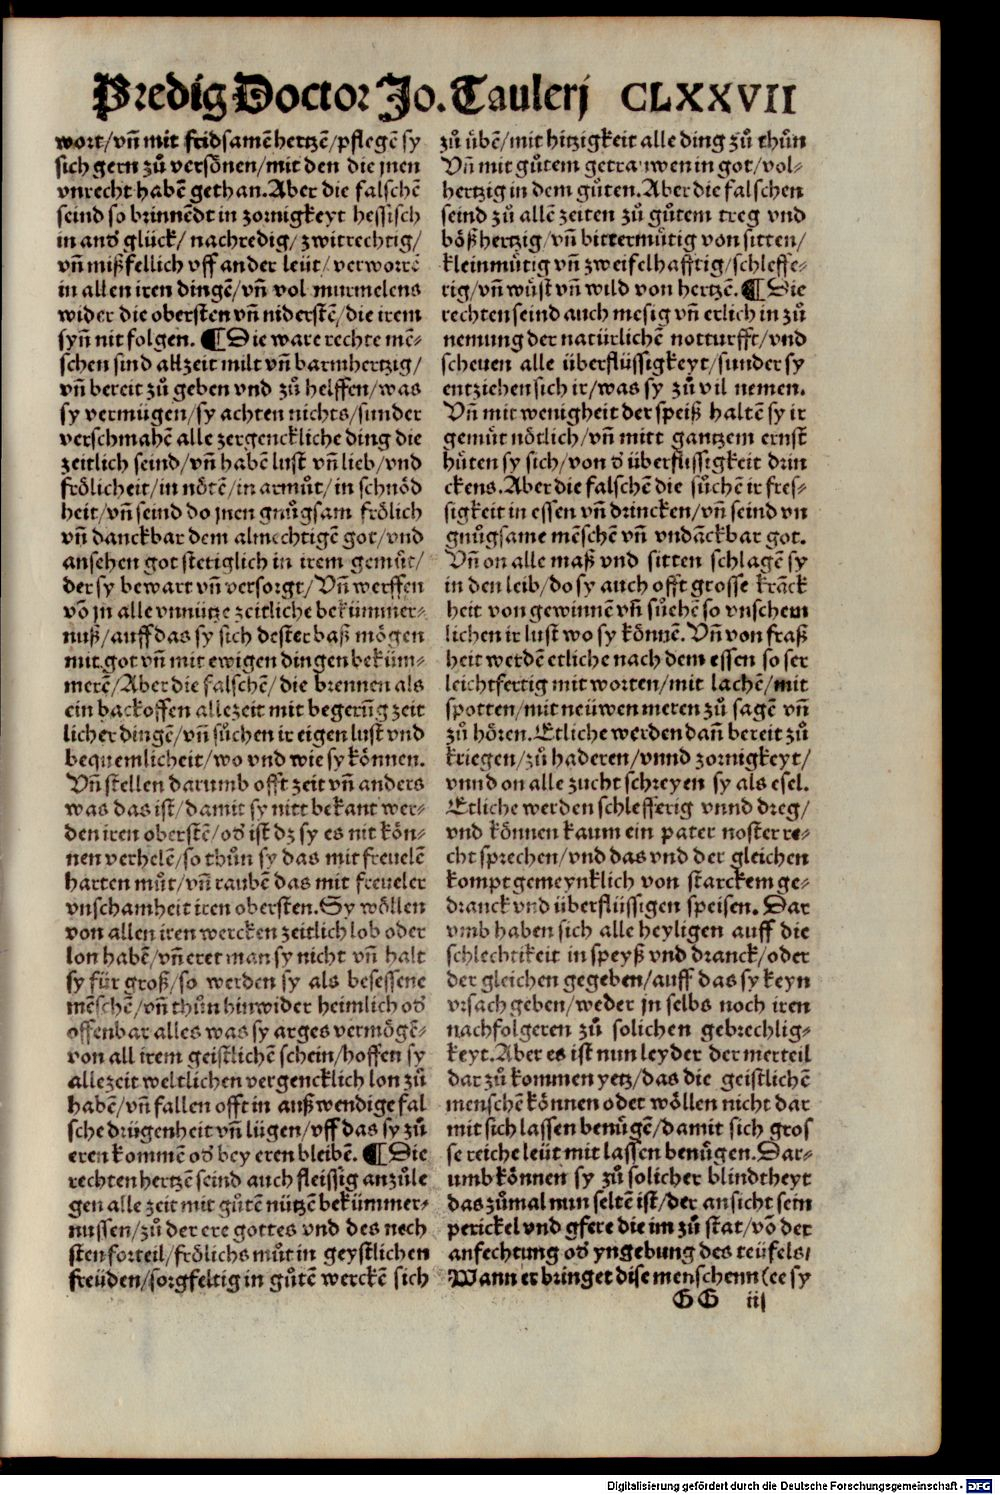 Predig Doctor Jo. Taulerj CLXXVII
wort/vñ mit fridsamē hertzē/pflegē sy
sich gern zů versönen/mit den die jnen
vnrecht habē gethan. Aber die falschē
seind so brinnēdt in zornigkeyt hessisch
in anđ glück/ nachredig/ zwitrechtig/
vñ mißfellich vff ander leüt/ verworrē
in allen iren dingē/vñ vol murmelens
wider die obersten vñ niderstē/die irem
syñ nit folgen. ¶ Die ware rechte mē⸗
schen sind alzeit milt vñ barmhertzig/
vñ bereit zů geben vnd zů helffen/was
sy vermügen/sy achten nichts/sunder
verschmahē alle zergenckliche ding die
zeitlich seind/vñ habēn lust vñ lieb/vnd
frölicheit/in nötē/in armůt/in schnöd
heit/vñ seind do jnen gnůgsam frölich
vñ danckbar dem almechtigē got/vnd
ansehen got stetiglich in irem gemůt/
der sy bewart vñ versorgt/ Vñ werffen
vō jn alle vnnütze zeitliche bekümmer⸗
nuß/auff das sy sich dester baß mögen
mit got vñ mit ewigen dingen beküm⸗
merē/Aber die falschē/die brennen als
ein backoffen allezeit mit begerūg zeit
licher dingē/vñ sůchen ir eigen lust vnd
bequemlicheit/wo vnd wie sy können.
Vñ stellen darumb offt zeit vñ anders
was das ist/damit sy nitt bekant wer⸗
den iren oberstē/ođ ist dz sy es nit kön⸗
nen verhelē/so thůn sy das mit freuelē
harten můt/vñ raubē das mit freueler
vnschamheit iren obersten. Sy wöllen
von allen iren wercken zeitlich lob oder
lon habē/vñ eret man sy nicht vñ halt
sy für groß/so werden sy als besessene
mēschē/vñ thůn hinwider heimlich ođ
offenbar alles was sy arges vermögē⸗
von all irem geistlichē schein/hoffen sy
allezeit weltlichen vergencklich lon zů
habē/vñ fallen offt in außwendige fal
sche drügenheit vñ lügen/vff das sy zů
eren kommē ođ bey eren bleibē. ¶ Die
rechten hertzē seind auch fleissig anzůle
gen alle zeit mit gůtē nützē bekümmer⸗
nussen/zů der ere gottes vnd des nech
sten forteil/frölichs můt in geystlichen
freüden/sorgfeltig in gůtē werckē sich
zů übē/mit hitzigkeit alle ding zů thůn
Vñ mit gůtem getrauwen in got/vol⸗
hertzig in dem gůten. Aber die falschen
seind zů allē zeiten zů gůtem treg vnd
bößhertzig/vñ bittermůtig von sitten/
kleinmůtig vñ zweifelhafftig/schleffe⸗
rig/vñ wůst vñ wild von hertzē. ¶ Die
rechten seind auch mesig vñ erlich in zů
nemung der natürlichē notturfft/vnd
scheuen alle überflüssigkeyt/sunder sy
entziehen sich ir/was sy zů vil nemen.
Vñ mit wenigheit der speiß haltē sy ir
gemůt nötlich/vñ mitt gantzem ernst
hůten sy sich/von đ überflussigkeit drin
ckens. Aber die falschē die sůchē ir fres⸗
sigkeit in essen vñ drincken/vñ seind vn
gnůgsame mēschē vñ vndāckbar got.
Vñ on alle maß vnd sitten schlagē sy
in den leib/do sy auch offt grosse krāck
heit von gewinnē vñ sůchē so vnschem
lichen ir lust wo sy könnē. Vñ von fraß
heit werdē etliche nach dem essen so ser
leichtfertig mit worten/mit lachē/mit
spotten/mit neüwen meren zů sagē vñ
zů hören. Etliche werden dañ bereit zů
kriegen/zů haderen/vnnd zornigkeyt/
vnnd on alle zucht schreyen sy als esel.
Etliche werden schlefferig vnnd dreg/
vnd können kaum ein pater noster re⸗
cht sprechen/vnd das vnd der gleichen
kompt gemeynklich von starckem ge⸗
dranck vnd überflüssigen speisen. Dar
vmb haben sich alle heyligen auff die
schlechtikeit in speyß vnd dranck/oder
der gleichen gegeben/auff das sy keyn
vrsach geben/weder jn selbs noch iren
nachfolgeren zů solichen gebrechlig⸗
keyt. Aber es ist nun leyder der merteil
dar zů kommen yetz/das die geistlichē
menschē können oder wöllen nicht dar
mit sich lassen benůgē/damit sich gros
se reiche leüt mit lassen benůgen. Dar⸗
umb können sy zů solicher blindtheyt
das zůmal nun seltē ist/der ansicht sein
perickel vnd gfere die im zů stat/vō der
anfechtung ođ yngebung des teüfels/
Wann er bringet dise menschenn (ee sy
GG iij
Digitalisierung gefördert durch die Deutsche Forschungsgemeinschaft - DFG